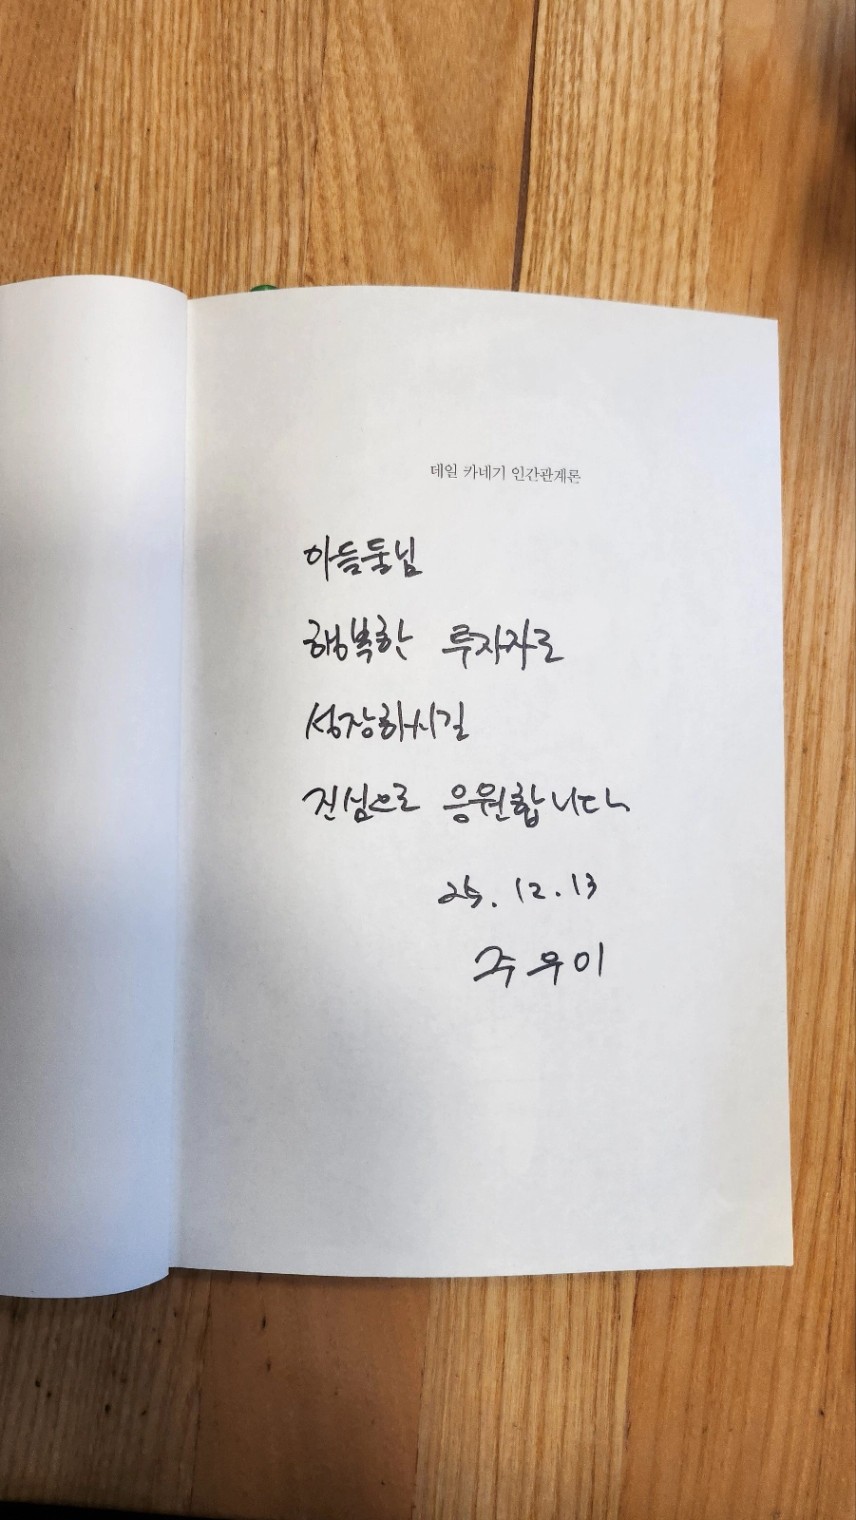 데일 카네기 인간관계론
아들둘님
행복한 투자자로
성장하시길
진심으로 응원합니다
25. 12. 13
주우이